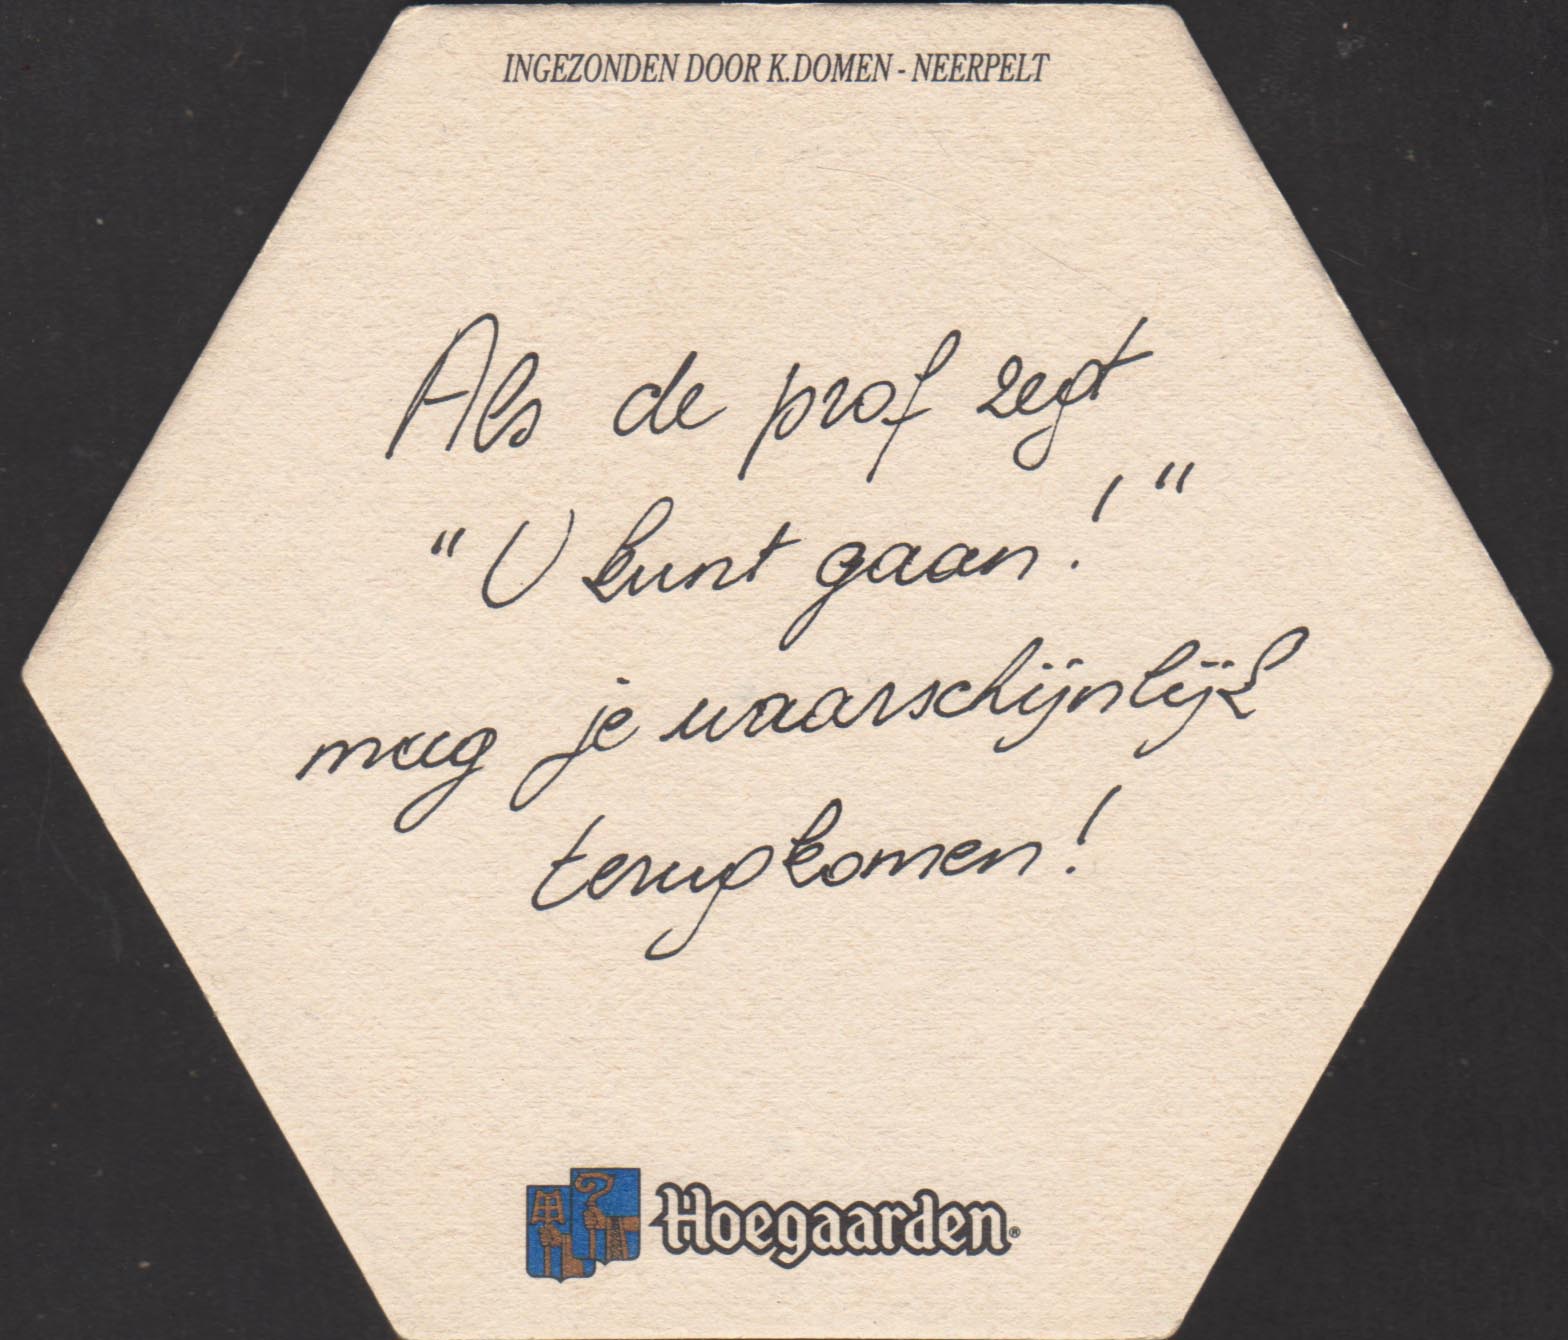 INGEZONDEN DOOR K.DOMEN - NEERPELT
Als de prof zegt
"U kunt gaan!"
mag je waarschijnlijk
terugkomen!
Hoegaarden®